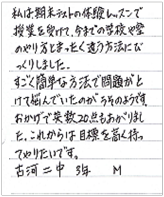 私は期末テストの体験レッスンで
授業を受けて、今までの学校や塾
のやり方とまったく違う方法にび
っくりしました。
すごく簡単な方法で問題がと
けて悩んでいたのがうそのようです。
おかげで英数20点もあがりまし
た。これからは目標を高く持っ
てやりたいです。
古河二中 3年 M